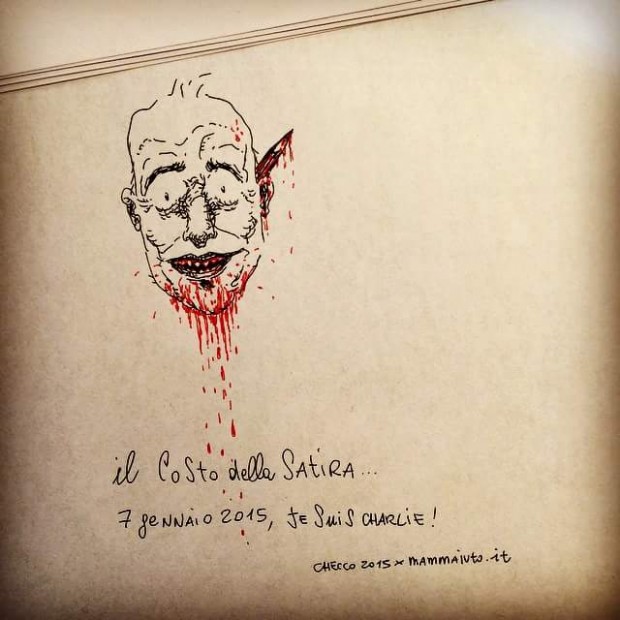 il CoSto della SATiRA...
7 geNNAIO 2015, Je Suis CHARLIE!
CHECCO 2015 x mammaiuto.it